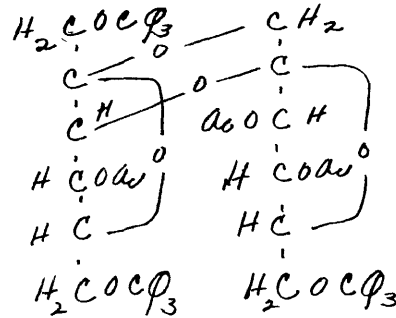 H₂COCφ₃ O CH₂
C O C
C H AcO C H
H C OAc O H C OAc O
H C H C
H₂COCφ₃ H₂COCφ₃